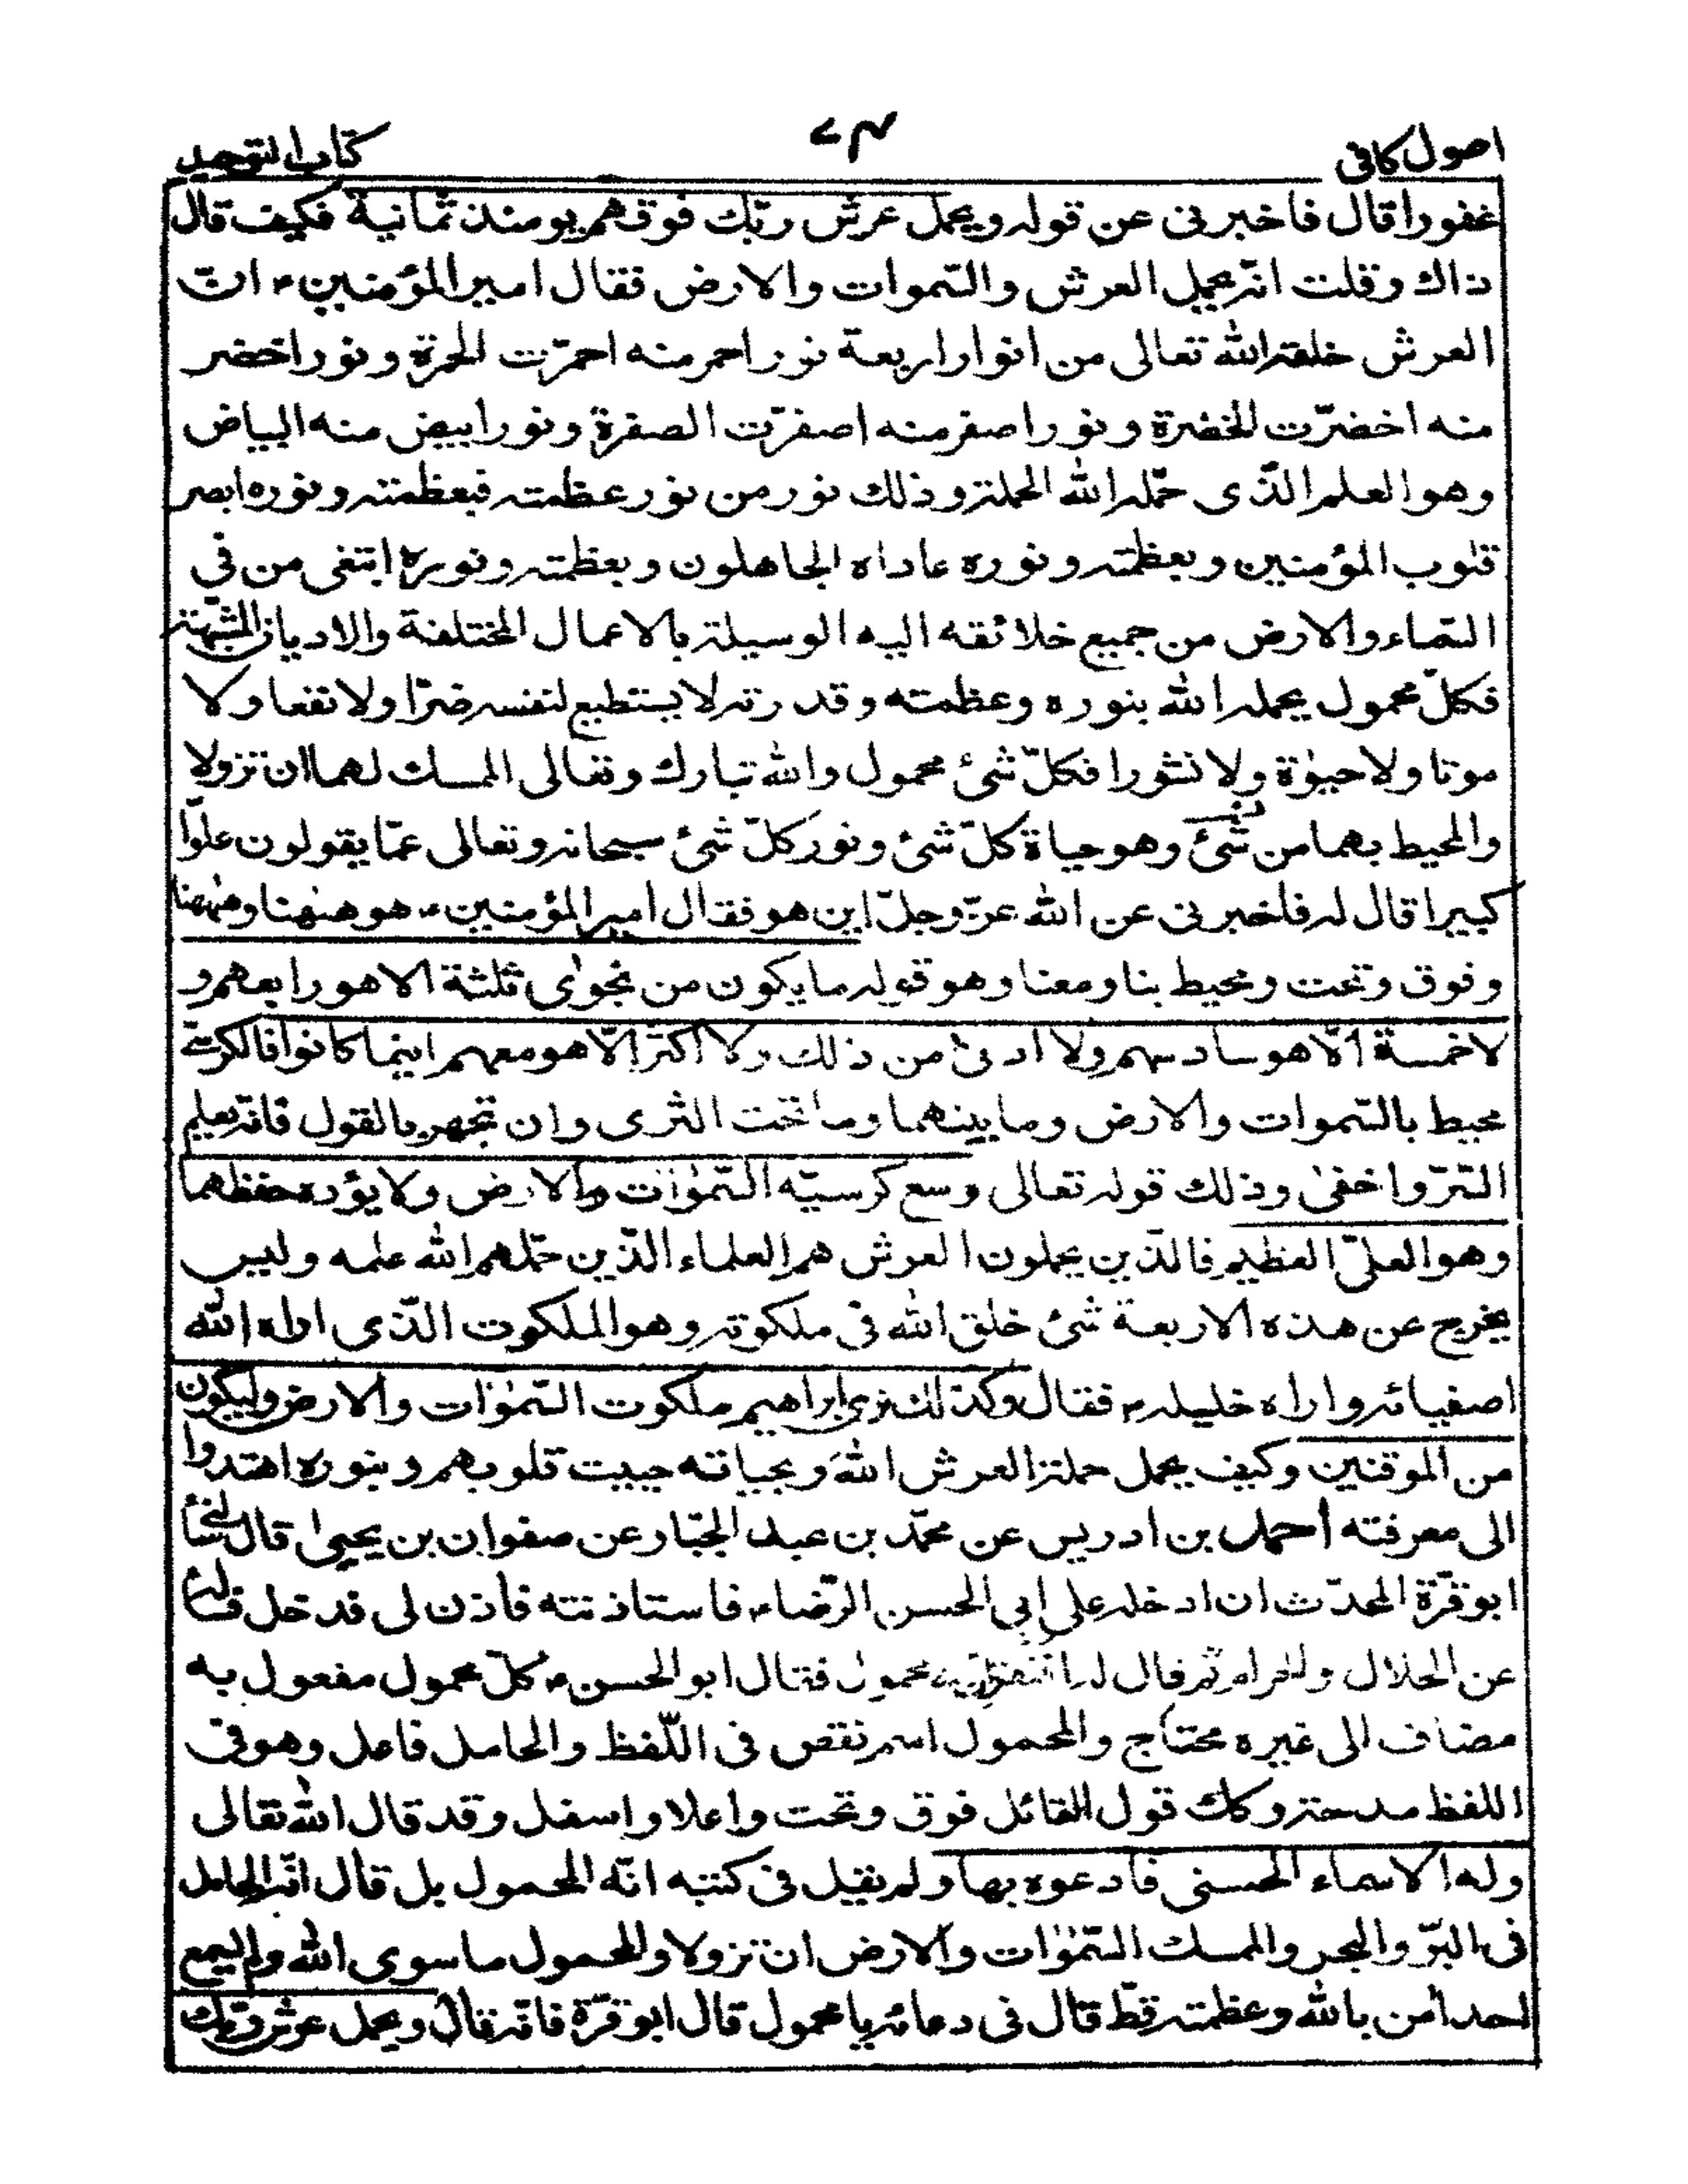 اصول كافى
٧٤
كتاب التوحيد
غفورا قال فاخبرنى عن قوله ويحمل عرش ربّك فوقهم يومئذ ثمانية فكيف قال
ذاك وقلت انّه يحمل العرش والسّموات والارض فقال امير المؤمنين ع انّ
العرش خلقه الله تعالى من انوار اربعة نور احمر منه احمرّت الحمرة ونور اخضر
منه اخضرّت الخضرة ونور اصفر منه اصفرّت الصفرة ونور ابيض منه البياض
وهو العلم الّذى حمّله الله الحملة وذلك نور من نور عظمته فبعظمته ونوره ابصر
قلوب المؤمنين وبعظمته ونوره عاداه الجاهلون وبعظمته ونوره ابتغى من في
السّماء والارض من جميع خلائقه اليه الوسيلة بالاعمال المختلفة والاديان المشبّهة
فكلّ محمول يحمله الله بنوره وعظمته وقدرته لا يستطيع لنفسه ضرّا ولا نفعا ولا
موتا ولا حيوٰة ولا نشورا فكلّ شئ محمول والله تبارك وتعالى المسك لهما ان تزولا
والمحيط بهما من شئ وهو حياة كلّ شئ ونور كلّ شئ سبحانه وتعالى عمّا يقولون علوّا
كبيرا قال له فاخبرنى عن الله عزّ وجلّ اين هو فقال امير المؤمنين ع هو هٰهنا وهٰهنا
وفوق وتحت ومحيط بنا ومعنا وهو قوله ما يكون من نجوٰى ثلثة الا هو رابعهم و
لا خمسة الّا هو سادسهم ولا ادنىٰ من ذلك ولا اكثر الّا هو معهم اينما كانوا فالكرسىّ
محيط بالسّموات والارض وما بينهما وما تحت الثرى وان تجهر بالقول فانّه يعلم
السّرّ واخفىٰ وذلك قوله تعالى وسع كرسيّه السّمٰوٰات والارض ولا يؤده حفظهما
وهو العلىّ العظيم فالّذين يحملون العرش هم العلماء الّذين حمّلهم الله علمه وليس
يخرج عن هذه الاربعة شئ خلق الله فى ملكوته وهو الملكوت الّذى اراه الله
اصفيائه واراه خليله ع فقال وكذلك نرى ابراهيم ملكوت السّمٰوٰات والارض وليكون
من الموقنين وكيف يحمل حملة العرش الله وبحياته حييت قلوبهم وبنوره اهتدوا
الى معرفته احمد بن ادريس عن محمّد بن عبد الجبّار عن صفوان بن يحيىٰ قال سئلنى
ابو قرّة المحدّث ان ادخله على ابى الحسن الرّضاء ع فاستاذنته فاذن لى فدخل فسئله
عن الحلال والحرام ثم قال له محمول فقال ابو الحسن ع كلّ محمول مفعول به
مضاف الى غيره محتاج والمحمول اسم نقص فى اللّفظ والحامل فاعل وهو فى
اللفظ مدحة وكك قول القائل فوق وتحت واعلا واسفل وقد قال الله تعالى
وله الاسماء الحسنى فادعوه بها ولم يقل فى كتبه انّه المحمول بل قال انّه الحامل
فى البرّ والبحر والمسك السّمٰوٰات والارض ان تزولا والمحمول ما سوى الله ولم يسمع
احد امن بالله وعظمته قطّ قال فى دعائه يا محمول قال ابو قرّة فانّه قال ويحمل عرش ربّك